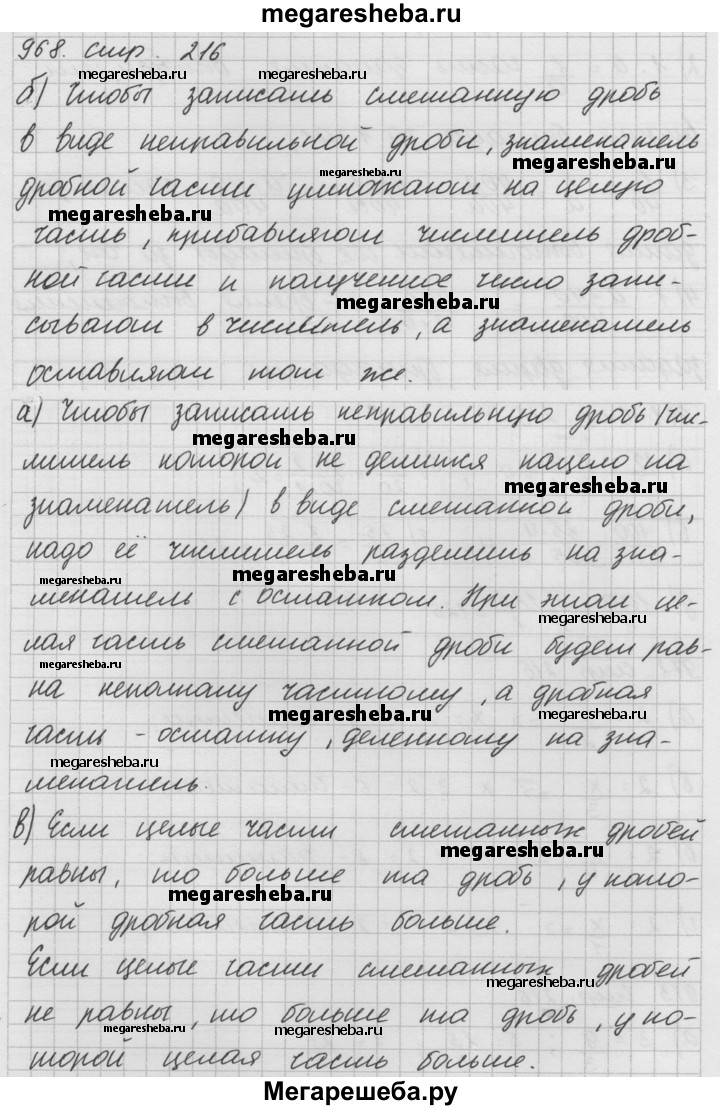 megaresheba.ru
968. стр. 216
megaresheba.ru megaresheba.ru
б) Чтобы записать смешанную дробь
в виде неправильной дроби, знаменатель
megaresheba.ru megaresheba.ru
дробной части умножают на целую
megaresheba.ru
часть, прибавляют числитель дроб-
ной части и полученное число запи-
megaresheba.ru
сывают в числитель, а знаменатель
оставляют тот же.
а) Чтобы записать неправильную дробь (чис-
megaresheba.ru
литель которой не делится нацело на
megaresheba.ru
знаменатель) в виде смешанной дроби,
надо её числитель разделить на зна-
megaresheba.ru megaresheba.ru
менатель с остатком. При этом це-
megaresheba.ru
лая часть смешанной дроби будет рав-
megaresheba.ru
на неполному частному, а дробная
megaresheba.ru megaresheba.ru
часть - остатку, деленному на зна-
megaresheba.ru
менатель.
в) Если целые части смешанных дробей
megaresheba.ru
равны, то больше та дробь, у кото-
megaresheba.ru
рой дробная часть больше.
Если целые части смешанных дробей
megaresheba.ru
не равны, то больше та дробь, у ко-
megaresheba.ru megaresheba.ru
торой целая часть больше.
Мегарешеба.ру